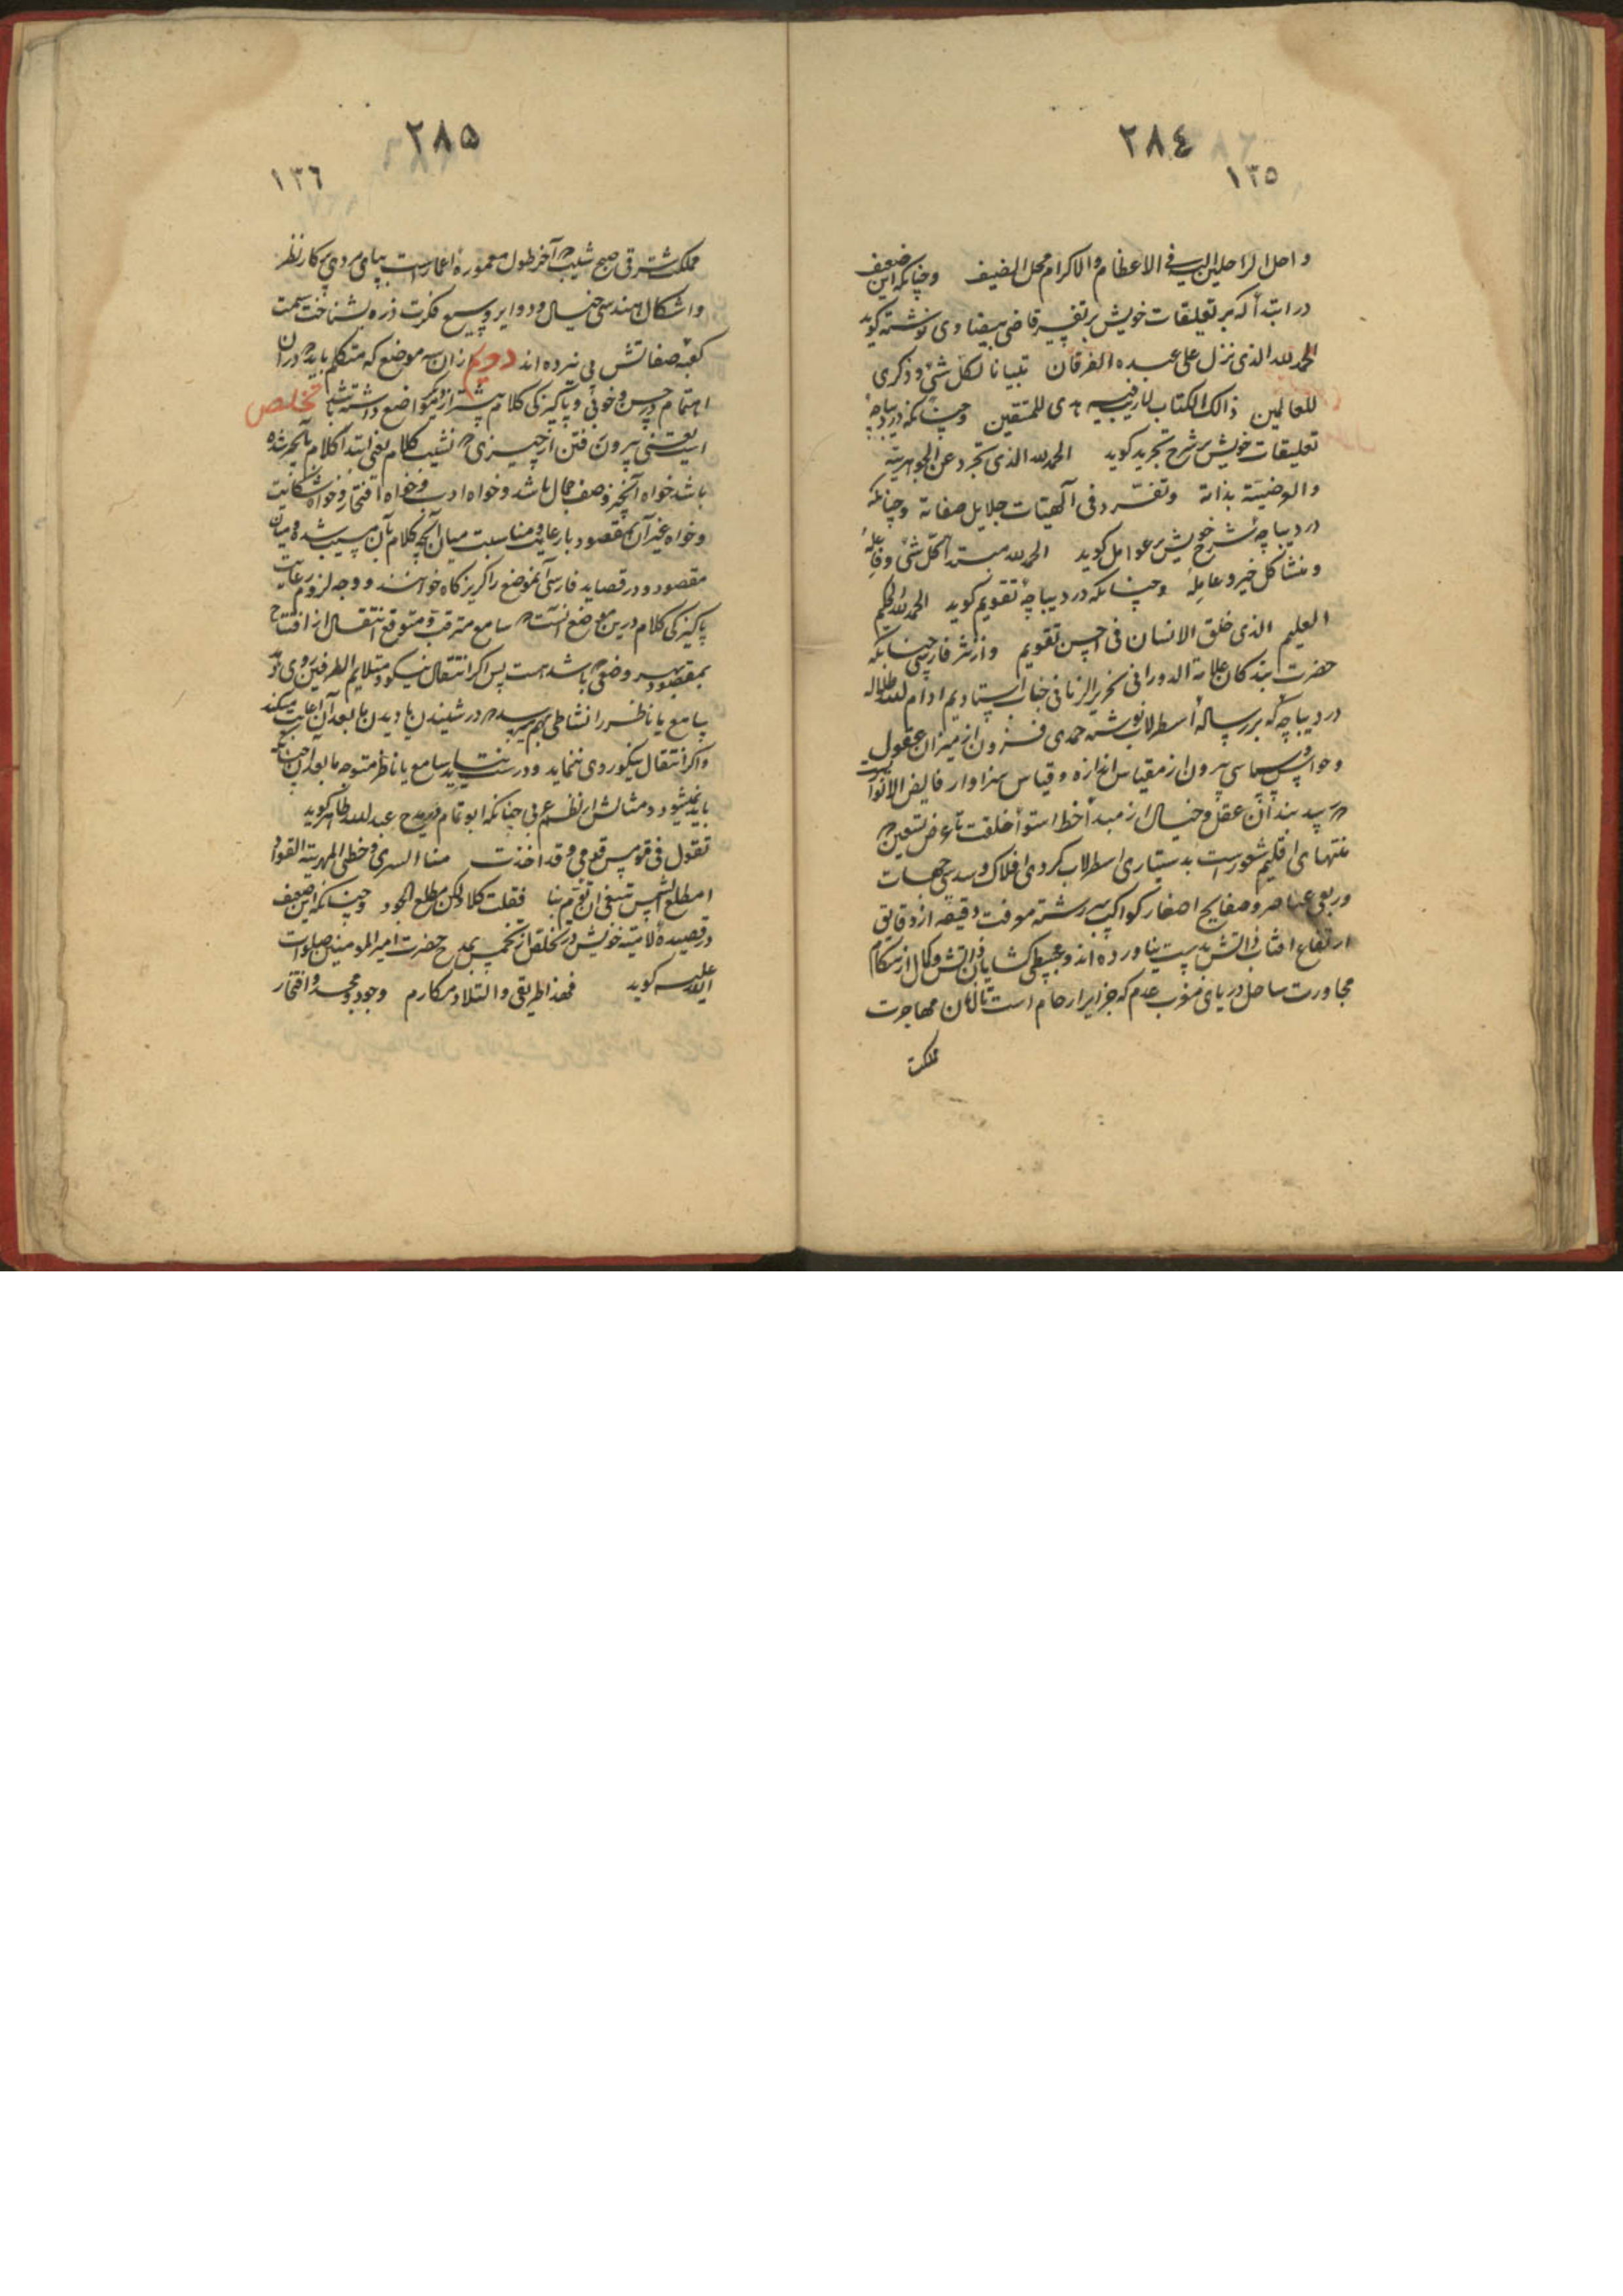 ٢٨٤
١٣٥
و احل الراحلین الیه فی الاعظام والاکرام محل الضیف وچنانکه این ضعیف
در ابتدأ که بر تعلیقات خویش بر تفسیر قاضی بیضاوی نوشته کوید
الحمد لله الذی نزل علی عبده الفرقان تبیانا لکل شئ وذکری
للعالمین ذالک الکتاب لاریب فیه هدی للمتقین وچنانکه در دیباچهٔ
تعلیقات خویش بر شرح تجرید کوید الحمد لله الذی تجرد عن الجوهریة
والعرضیة بذاته وتفرّد فی الهیات جلایل صفاته وچنانکه
در دیباچهٔ شرح خویش بر عوامل کوید الحمد لله مبتدأ کل شئ وفاعله
ومنشأ کل خیر وعامله وچنانکه در دیباچهٔ تقویم کوید الحمد لله الحکیم
العلیم الذی خلق الانسان فی احسن تقویم واز نثر فارسی چنانکه
حضرت بندکان علامة الدورانی نحریر الزمانی جناب استادیم ادام الله ظلاله
در دیباچه که بر رسالهٔ اسطرلاب نوشته حمدی فزون از میزان عقول
وحواس وسپاسی بیرون از مقیاس اندازه وقیاس سزاوار فایض الانوار
که سپیدبندان عقل وخیال از مبدأ خط استوأ خلقت تا عرض تسعین که
منتهای اقلیم شعور است بدستیاری اسطرلاب کردی افلاک وسدسی جهات
وربعی عناصر وصفایح اصفار کواکب سررشته موفت دقیقه از دقایق
ارتفاع افتاب ذاتش بدست نیاورده اند و محیطی کشایان دانش وکمال از هنکام
مجاورت ساحل دریای مغرب عدم که جزایر ارحام است تا زمان مهاجرت
مملکت
٢٨٥
١٣٦
مملکت مشرقی صبح شیب که آخر طول معمورهٔ اعمار است بپای مردی پرکار نظر
واشکال هندسی خیال ودوایر وسیع فکرت ذره بشناخت سمت
کعبهٔ صفاتش پی نبرده اند دویم از ان سه موضع که متکلم باید که در ان
اهتمام در حسن وخوبی وپاکیزکی کلام بیشتر از دیکر مواضع داشته باشد تخلص
است یعنی بیرون رفتن از چیزی که نشیب کلام یعنی ابتدأ کلام بآنچیز شده
باشد خواه آنچیز وصف جمال باشد وخواه ادب وخواه افتخار وخواه شکایت
وخواه غیر آن بمقصود با رعایت مناسبت میان آنچه کلام بآن تشبیب شده ومیان
مقصود ودر قصاید فارسی آنموضع را کریزکاه خوانند ووجه لزوم رعایت
پاکیزکی کلام درین موضع آنست که سامع مترقب ومتوقع انتقال از افتتاح
بمقصود بهر وضعی که باشد هست پس اکر انتقال نیکو ومتلایم الطرفین روی نمود
سامع یا ناظر را نشاطی بهم میرسد که در شنیدن یا دیدن ما بعد آن اعانت میکند
واکر انتقال نیکو روی ننماید ودرست نیاید سامع یا ناظر متوجه ما بعد آن چنانکه
باید نمیشود ومثالش از نظم عربی چنانکه ابو تمام در مدح عبد الله طاهر کوید
تقول فی قومس قومی وقد اخذت منا السری وخطی المهریة القود
امطلع الشمس تبغی ان تؤم بنا فقلت کلا ولکن مطلع الجود وچنانکه این ضعیف
در قصیدهٔ لامیة خویش در تخلص از تحمس بمدح حضرت امیر المومنین صلوات
الله علیه کوید فهذا طریقی والتلاد مکارم وجود ومجد وافتخار